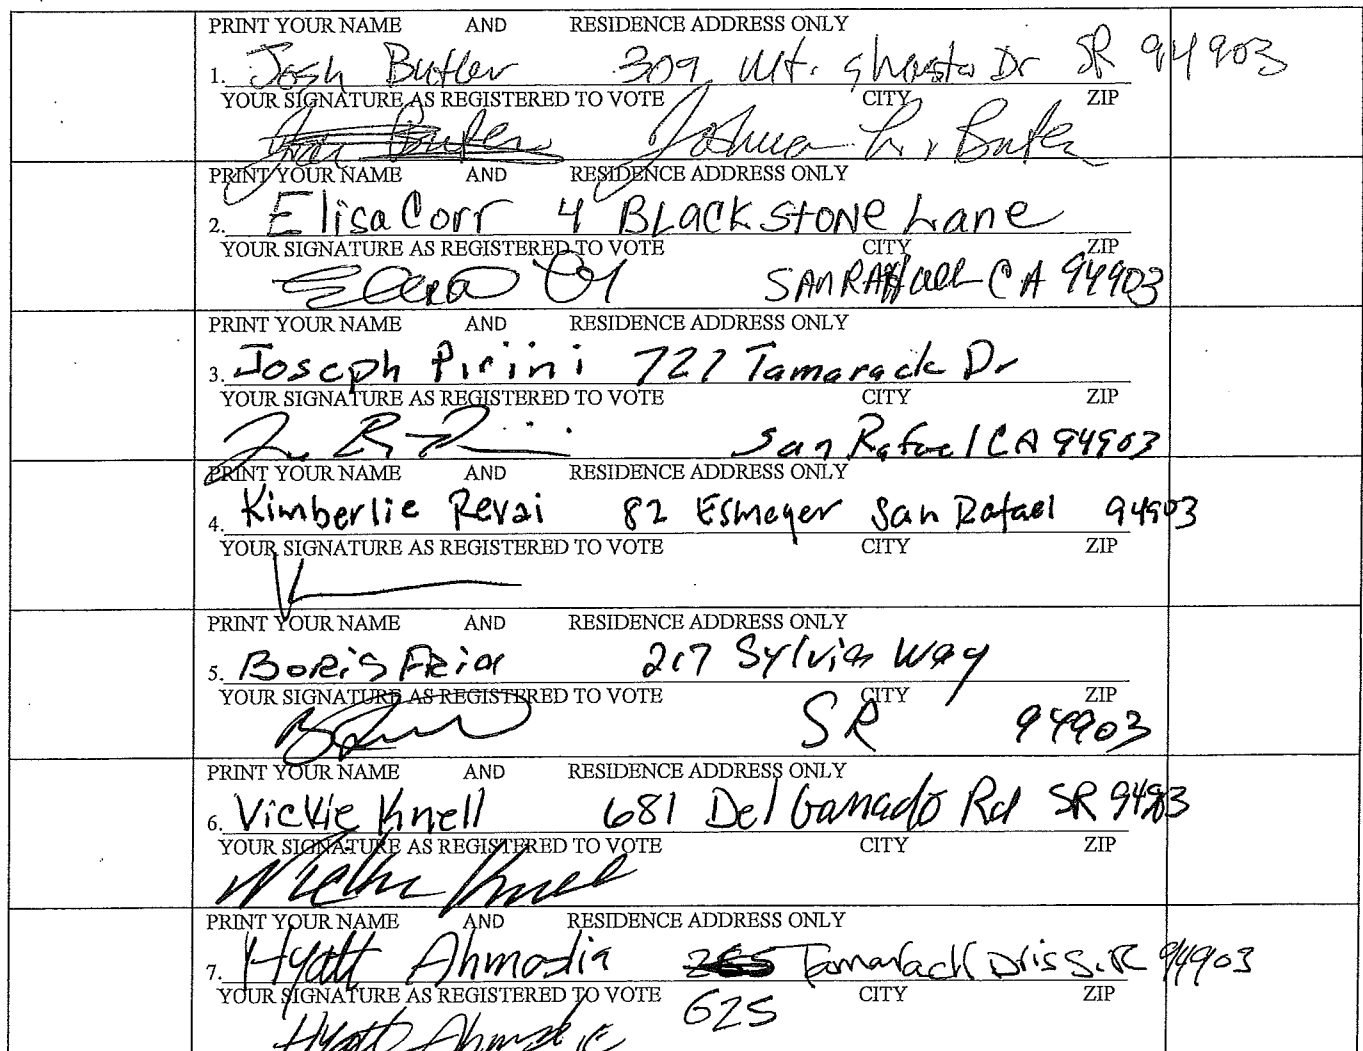 PRINT YOUR NAME AND RESIDENCE ADDRESS ONLY
1. Josh Butler 309 Mt. Shasta Dr SR 94903
YOUR SIGNATURE AS REGISTERED TO VOTE CITY ZIP
Joshua L. Butler
PRINT YOUR NAME AND RESIDENCE ADDRESS ONLY
2. Elisa Corr 4 BLACKSTONE Lane
YOUR SIGNATURE AS REGISTERED TO VOTE CITY ZIP
SAN RAffael CA 94903
PRINT YOUR NAME AND RESIDENCE ADDRESS ONLY
3. Joseph Pirini 727 Tamarack Dr
YOUR SIGNATURE AS REGISTERED TO VOTE CITY ZIP
San Rafael CA 94903
PRINT YOUR NAME AND RESIDENCE ADDRESS ONLY
4. Kimberlie Revai 82 Esmeyer San Rafael 94903
YOUR SIGNATURE AS REGISTERED TO VOTE CITY ZIP
PRINT YOUR NAME AND RESIDENCE ADDRESS ONLY
5. Boris 217 Sylvia Way
YOUR SIGNATURE AS REGISTERED TO VOTE CITY ZIP
SR 94903
PRINT YOUR NAME AND RESIDENCE ADDRESS ONLY
6. Vickie Knell 681 Del Ganado Rd SR 94903
YOUR SIGNATURE AS REGISTERED TO VOTE CITY ZIP
Vickie Knell
PRINT YOUR NAME AND RESIDENCE ADDRESS ONLY
7. Hyatt Ahmadia Tamarack S.R 94903
YOUR SIGNATURE AS REGISTERED TO VOTE CITY ZIP
625
Hyatt